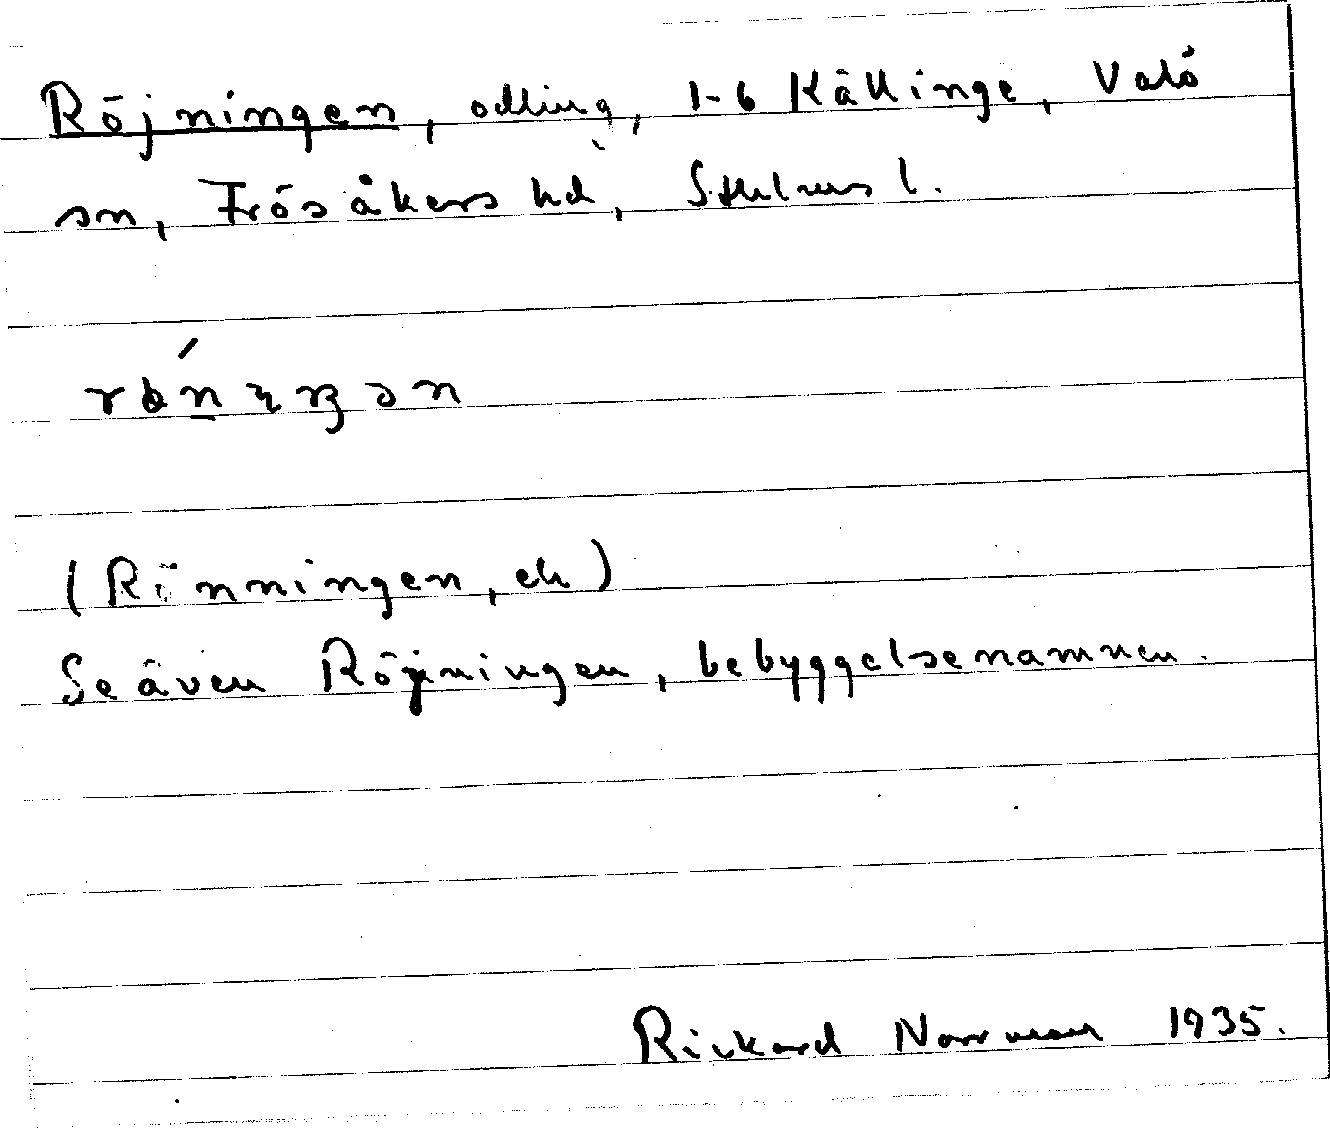 Röjningen, odling, 1-6 Källinge, Valö
sn, Frösåkers hd, Sthlms l.
(Rönningen, ek)
Se även Röjningen, bebyggelsenamnen.
Rickard Norrman 1935.